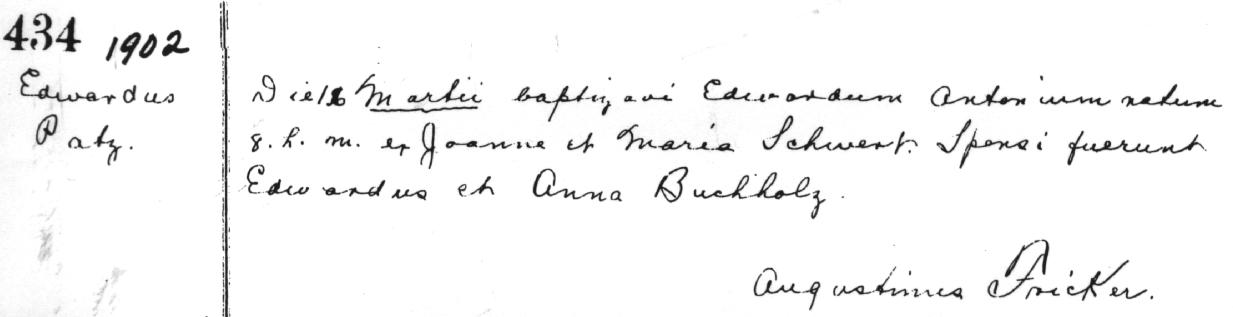 434 1902
Edwardus
Patz.
Die 16 Martii baptizavi Edwardum Antonium natum
8. h. m. ex Joanne et Maria Schwert. Sponsi fuerunt
Edwardus et Anna Buchholz.
Augustinus Fricker.